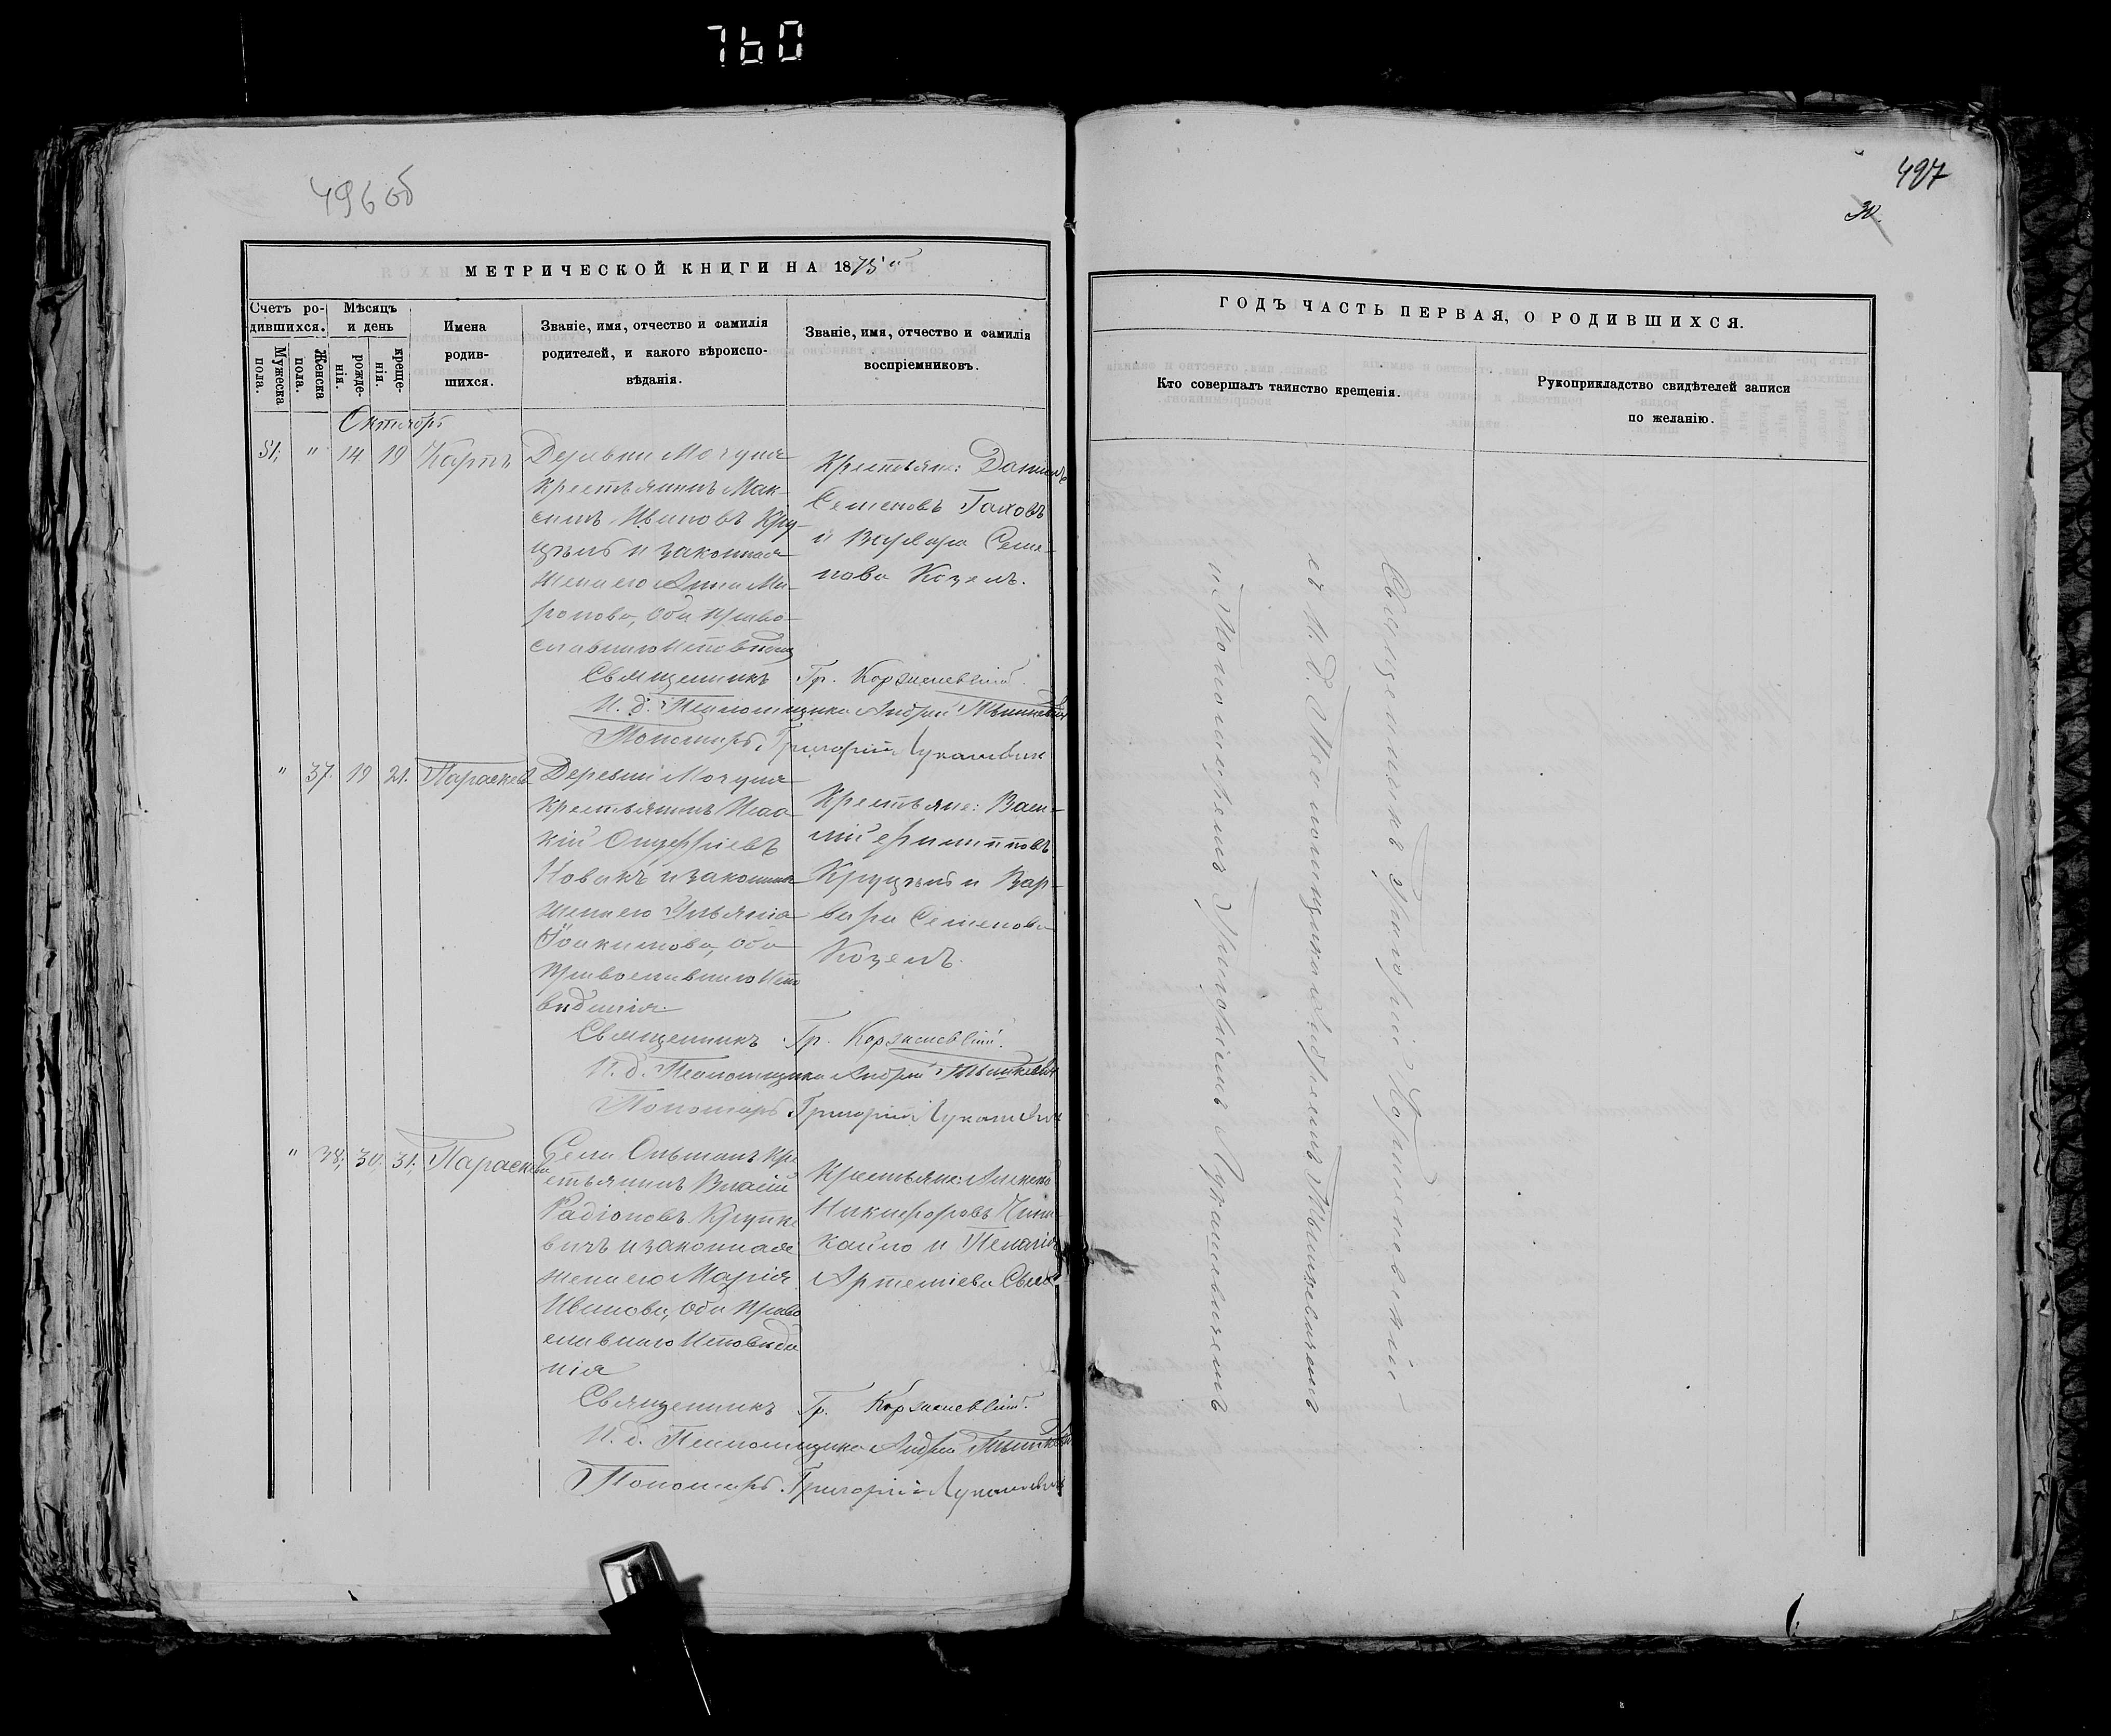 760
496 об
МЕТРИЧЕСКОЙ КНИГИ НА 1875 й
Счетъ ро-
дившихся.
Мужеска
пола.
Женска
пола.
Мѣсяцъ
и день
рожде-
нія.
креще-
нія.
Имена
родив-
шихся.
Званіе, имя, отчество и фамилія
родителей, и какого вѣроиспо-
вѣданія.
Званіе, имя, отчество и фамилія
воспріемниковъ.
Октябрь
51; " 14 19 Карпъ
Деревни Мочуля
крестьянинъ Мак-
симъ Ивановъ Кру-
и законная
жена его Анна Ми-
ронова, оба право-
славнаго
Крестьяне: Даниилъ
Семеновъ Гаховъ
и Варвара Семе-
нова Козелъ.
Священникъ Гр. Корженевскій
И. д. Псаломщика Андрей Мышкевич
Пономарь Григорій Лукашевич
" 37. 19 21. Параскева
Деревни Мочуля
крестьянинъ Исаа-
кій Онуфріевъ
Новакъ и законная
жена его Ульяна
Іоакимова, оба
православнаго испо
вѣданія
Крестьяне: Васи-
лій Филипповъ
и Вар-
вара Семенова
Козелъ.
Священникъ Гр. Корженевскій.
И. д. Псаломщика Андрей Мышкевич
Пономарь Григорій Лукашевич
" 38; 30; 31; Параскева
Села Ольманъ кре
стьянинъ Власій
Радіоновъ Крупке
вичъ и законная
жена его Марія
Иванова, оба право
славнаго исповѣда
нія
Крестьяне: Алексей
Никифоровъ
и Пелагія
Артеміева
Священникъ Гр. Корженевскій.
И. д. Псаломщика Андрей Мышкевич
Пономарь Григорій Лукашевич
497
30.
ГОДЪ ЧАСТЬ ПЕРВАЯ, О РОДИВШИХСЯ.
Кто совершалъ таинство крещенія.
Рукоприкладство свидѣтелей записи
по желанію.
Священникъ Григорій Корженевскій
съ И. д. Псаломщика Андреемъ Мышкевичемъ
и Пономаремъ Григоріемъ Лукашевичемъ